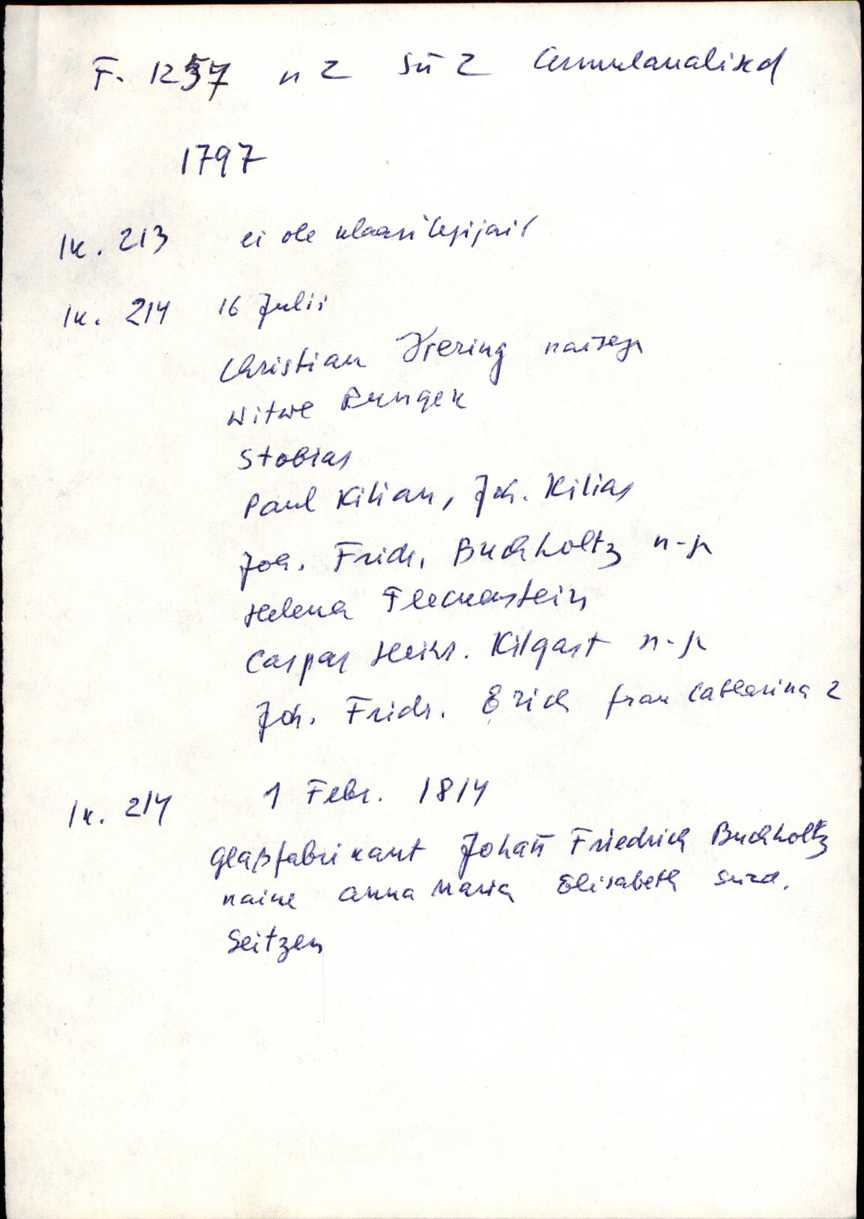 F. 1257 n 2 sü 2 Communalanalised
1797
lk. 213 ei ole klaasilepijail
lk. 214 16 Julii
Christian Viering naisega
Witwe Runger
Stobias
Paul Kilian, Joh. Kilias
Joh. Fridr. Buchholtz n-ja
Helena Fleckenstein
Caspar Heinr. Kilgast n-ja
Joh. Fridr. Erich frau Catharina 2
lk. 214 1 Febr. 1814
Glaßfabrikant Johañ Friedrich Buchholtz
naine Anna Maria Elisabeth sünd.
Seitzen